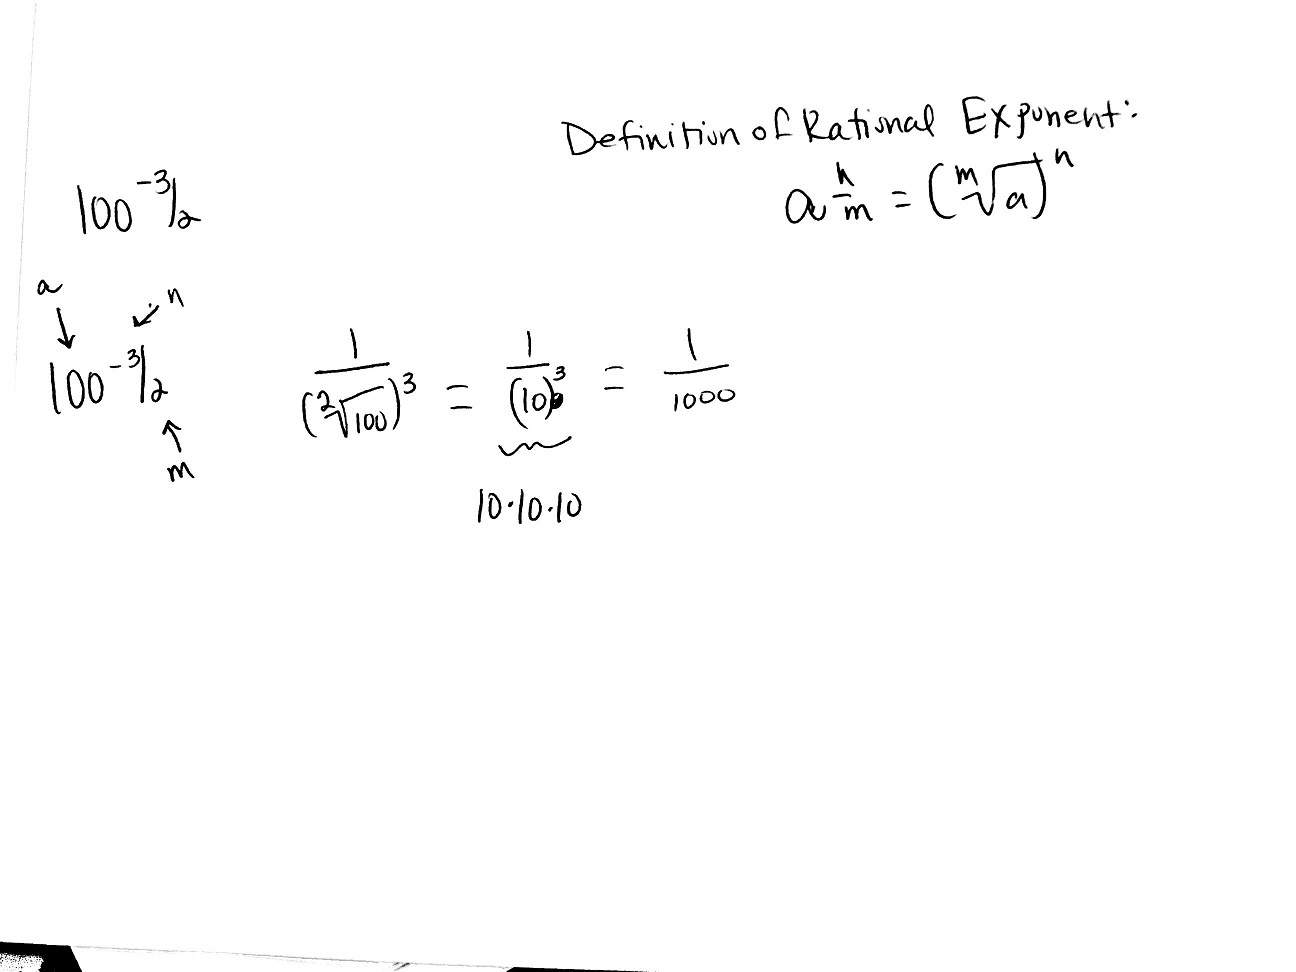 Definition of Rational Exponent:
a^(n/m) = (ᵐ√a)ⁿ
100^(-3/2)
a
n
100^(-3/2)
m
1/(²√100)³ = 1/(10)³ = 1/1000
10·10·10